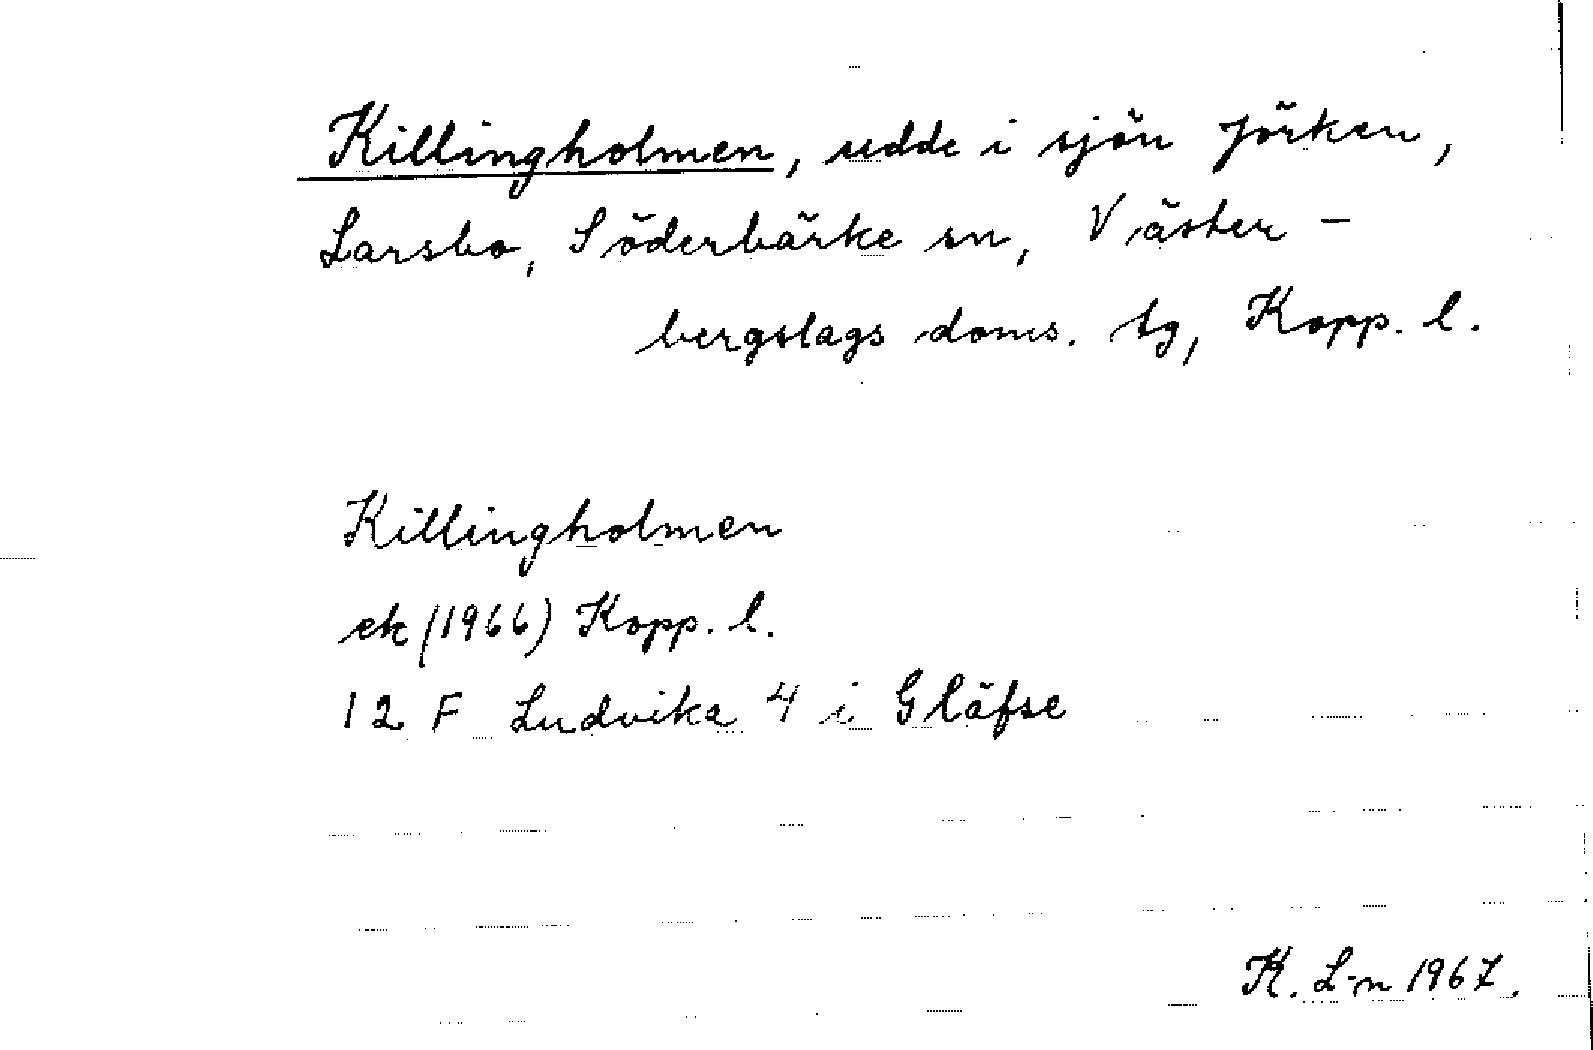 Killingholmen, udde i sjön Jörken,
Larsbo, Söderbärke sn, Väster-
bergslags doms. tg, Kopp. l.
Killingholmen
ek (1966) Kopp. l.
12 F Ludvika 4 i Gläfse
K. L-n 1967.